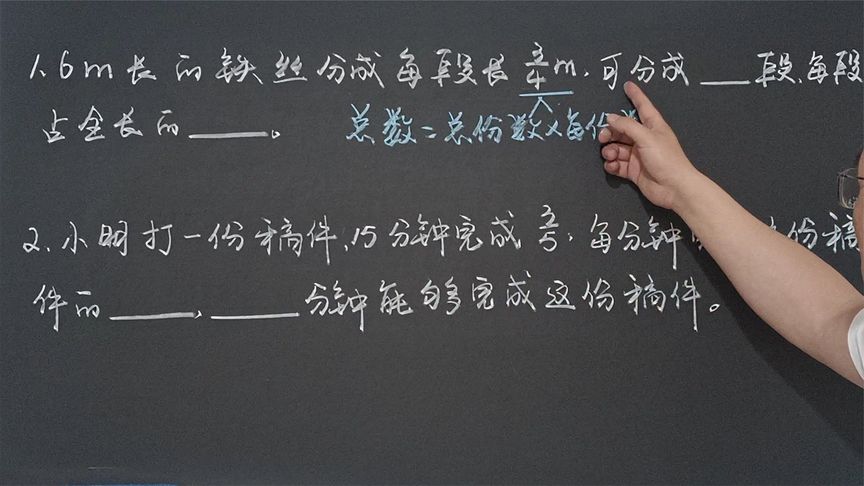 1. 6m长的铁丝分成每段长3/4m,可分成___段,每段
占全长的____。 总数=总份数×每份
2. 小明打一份稿件,15分钟完成3/5,每分钟 份稿
件的____,____分钟能够完成这份稿件。